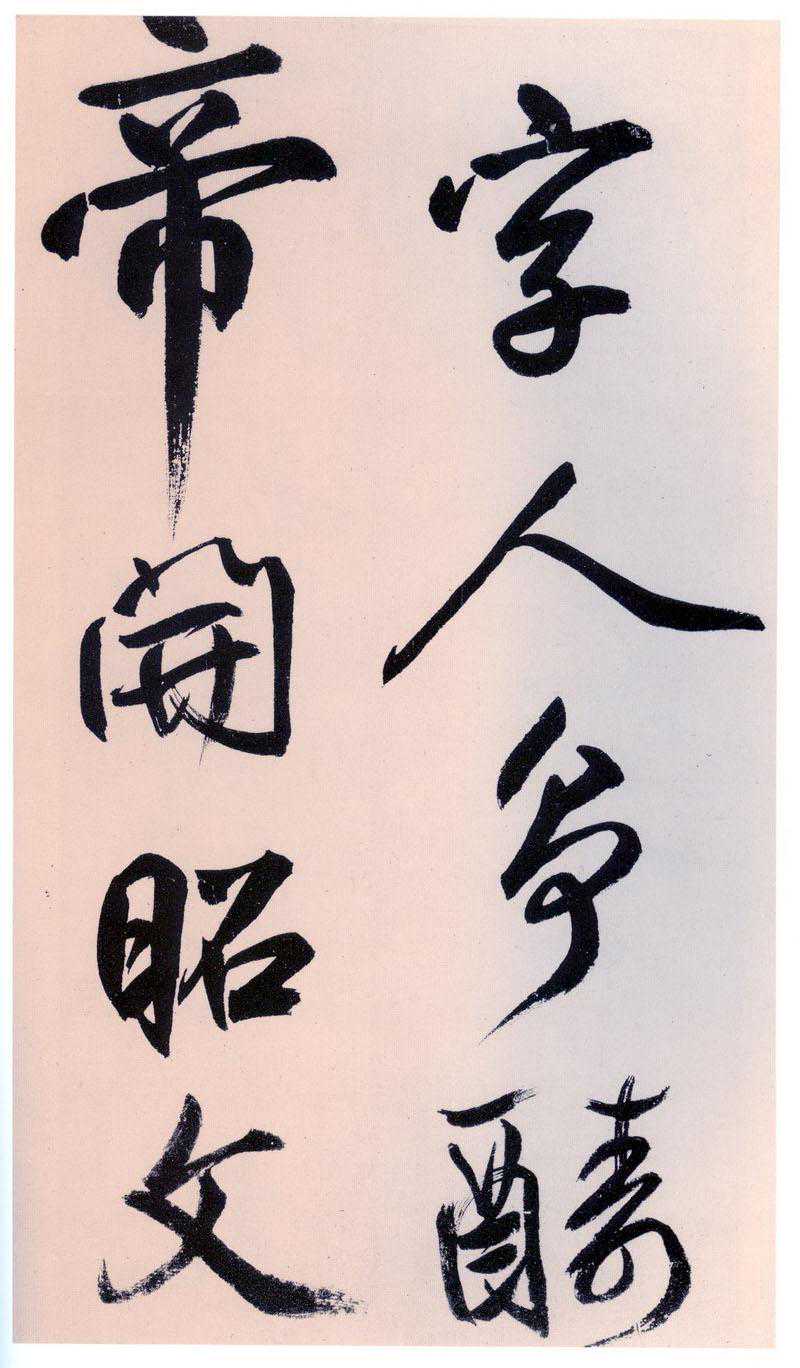 字人爭醻
帝開昭文